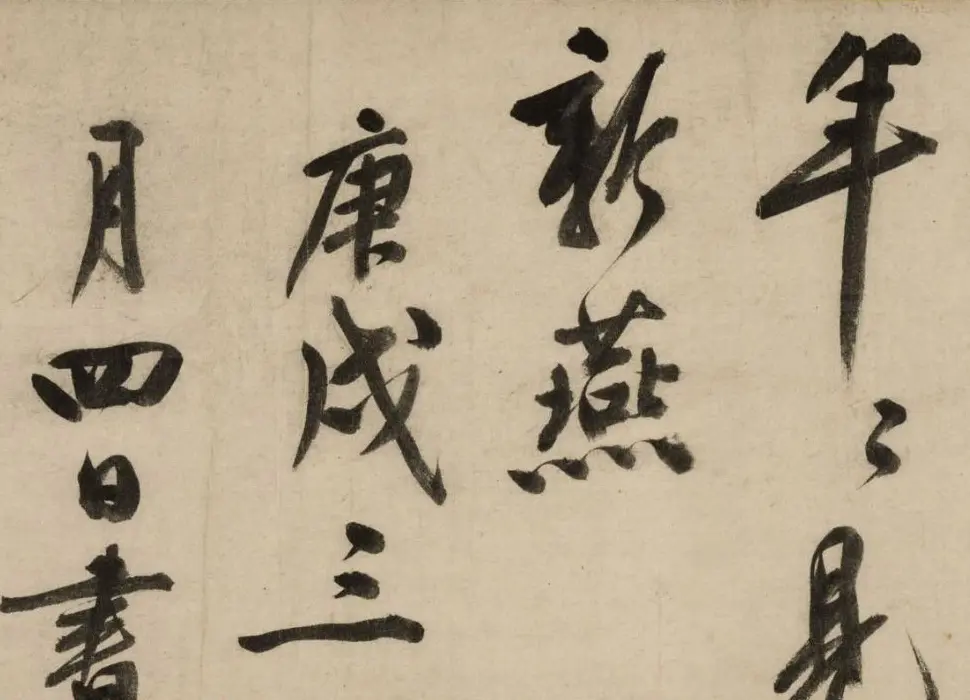 年〻見
新燕
庚戌三
月四日書